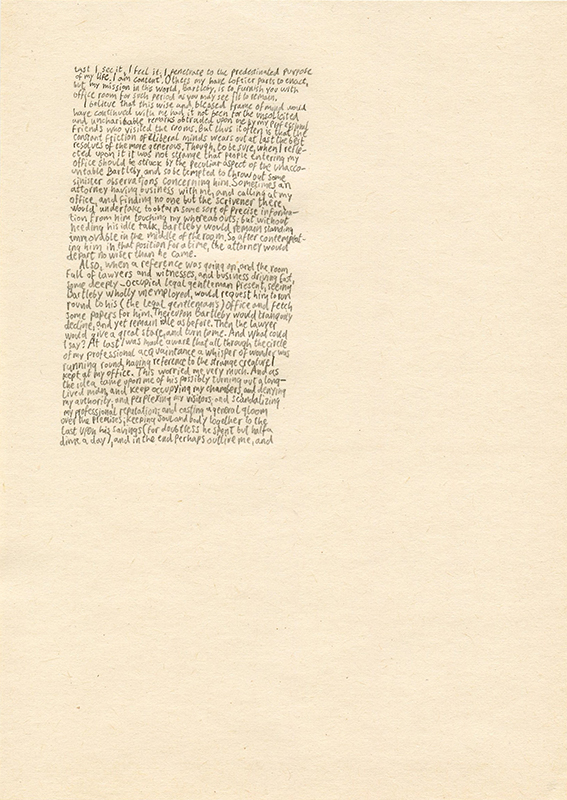 last I see it, I feel it; I penetrate to the predestinated purpose
of my life. I am content. Others my have loftier parts to enact,
but my mission in this world, Bartleby, is to furnish you with
office room for such period as you may see fit to remain.
I believe that this wise and blessed frame of mind would
have continued with me had it not been for the unsolicited
and uncharitable remarks obtruded upon me by my professional
friends who visited the rooms. But thus it often is that the
constant friction of illiberal minds wears out at last the best
resolves of the more generous. Though, to be sure, when I refle-
cted upon it it was not strange that people entering my
office should be struck by the peculiar aspect of the unacco-
untable Bartleby, and so be tempted to throw out some
sinister observations concerning him. Sometimes an
attorney having business with me, and calling at my
office, and finding no one but the scrivener there,
would undertake to obtain some sort of precise informa-
tion from him touching my whereabouts; but without
heeding his idle talk, Bartleby would remain standing
immovable in the middle of the room. So after contemplat-
ing him in that position for a time, the attorney would
depart no wiser than he came.
Also, when a reference was going on, and the room
full of lawyers and witnesses, and business driving fast,
some deeply-occupied legal gentleman present, seeing
Bartleby wholly unemployed, would request him to run
round to his (the legal gentleman's) office and fetch
some papers for him. Thereupon Bartleby would tranquilly
decline, and yet remain idle as before. Then the lawyer
would give a great stare, and turn to me. And what could
I say? At last I was made aware that all through the circle
of my professional acquaintance a whisper of wonder was
running round, having reference to the strange creature I
kept at my office. This worried me very much. And as
the idea came upon me of his possibly turning out a long-
lived man, and keep occupying my chambers, and denying
my authority, and perplexing my visitors; and scandalizing
my professional reputation; and casting a general gloom
over the premises; keeping soul and body together to the
last upon his savings (for doubtless he spent but half a
dime a day), and in the end perhaps outlive me, and